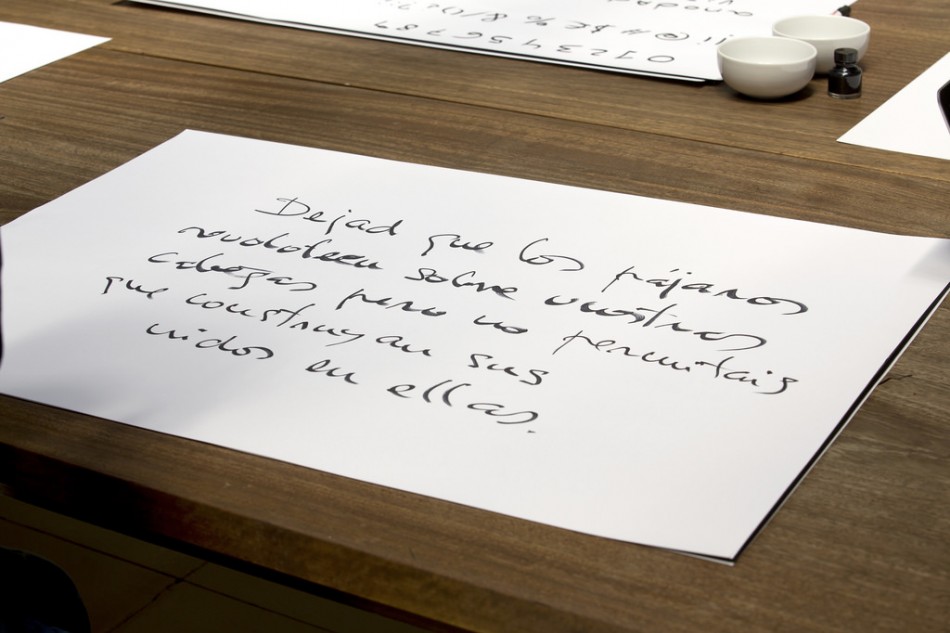 Dejad que los pájaros
revoloteen sobre vuestras
cabezas pero no permitais
que construyan sus
nidos en ellas.
0 1 2 3 4 5 6 7 8 9